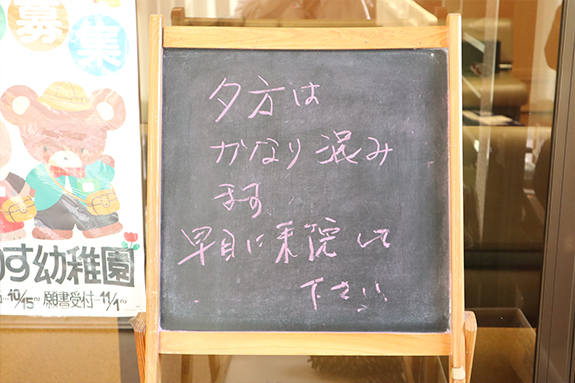 募集
夕方は
かなり混み
ます
早目に来院して
下さい
す幼稚園
10/15~ 願書受付 11/1~